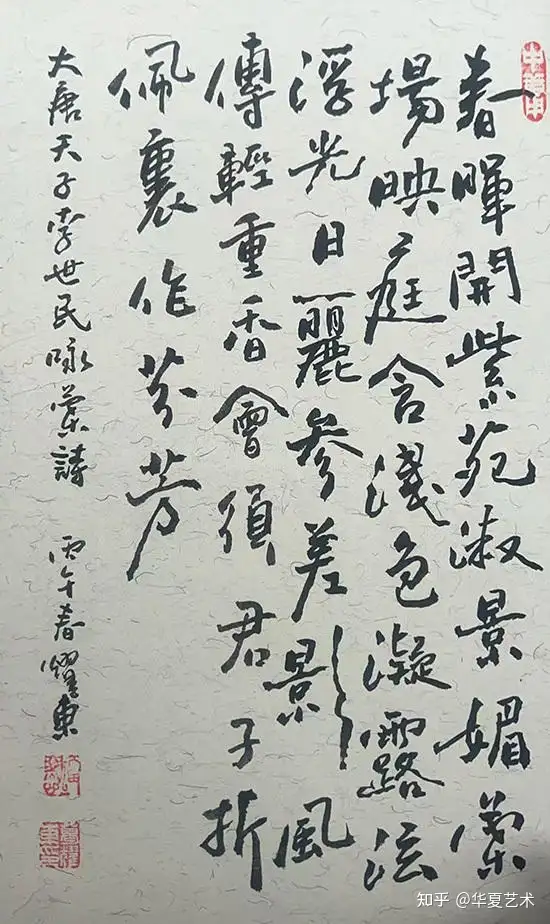 春暉開紫苑淑景媚蘭
場映庭含淺色凝露泫
浮光日麗参差影風
傳輕重香會須君子折
佩裏作芬芳
大唐天子李世民咏蘭詩 丙午春燿東
知乎 @华夏艺术